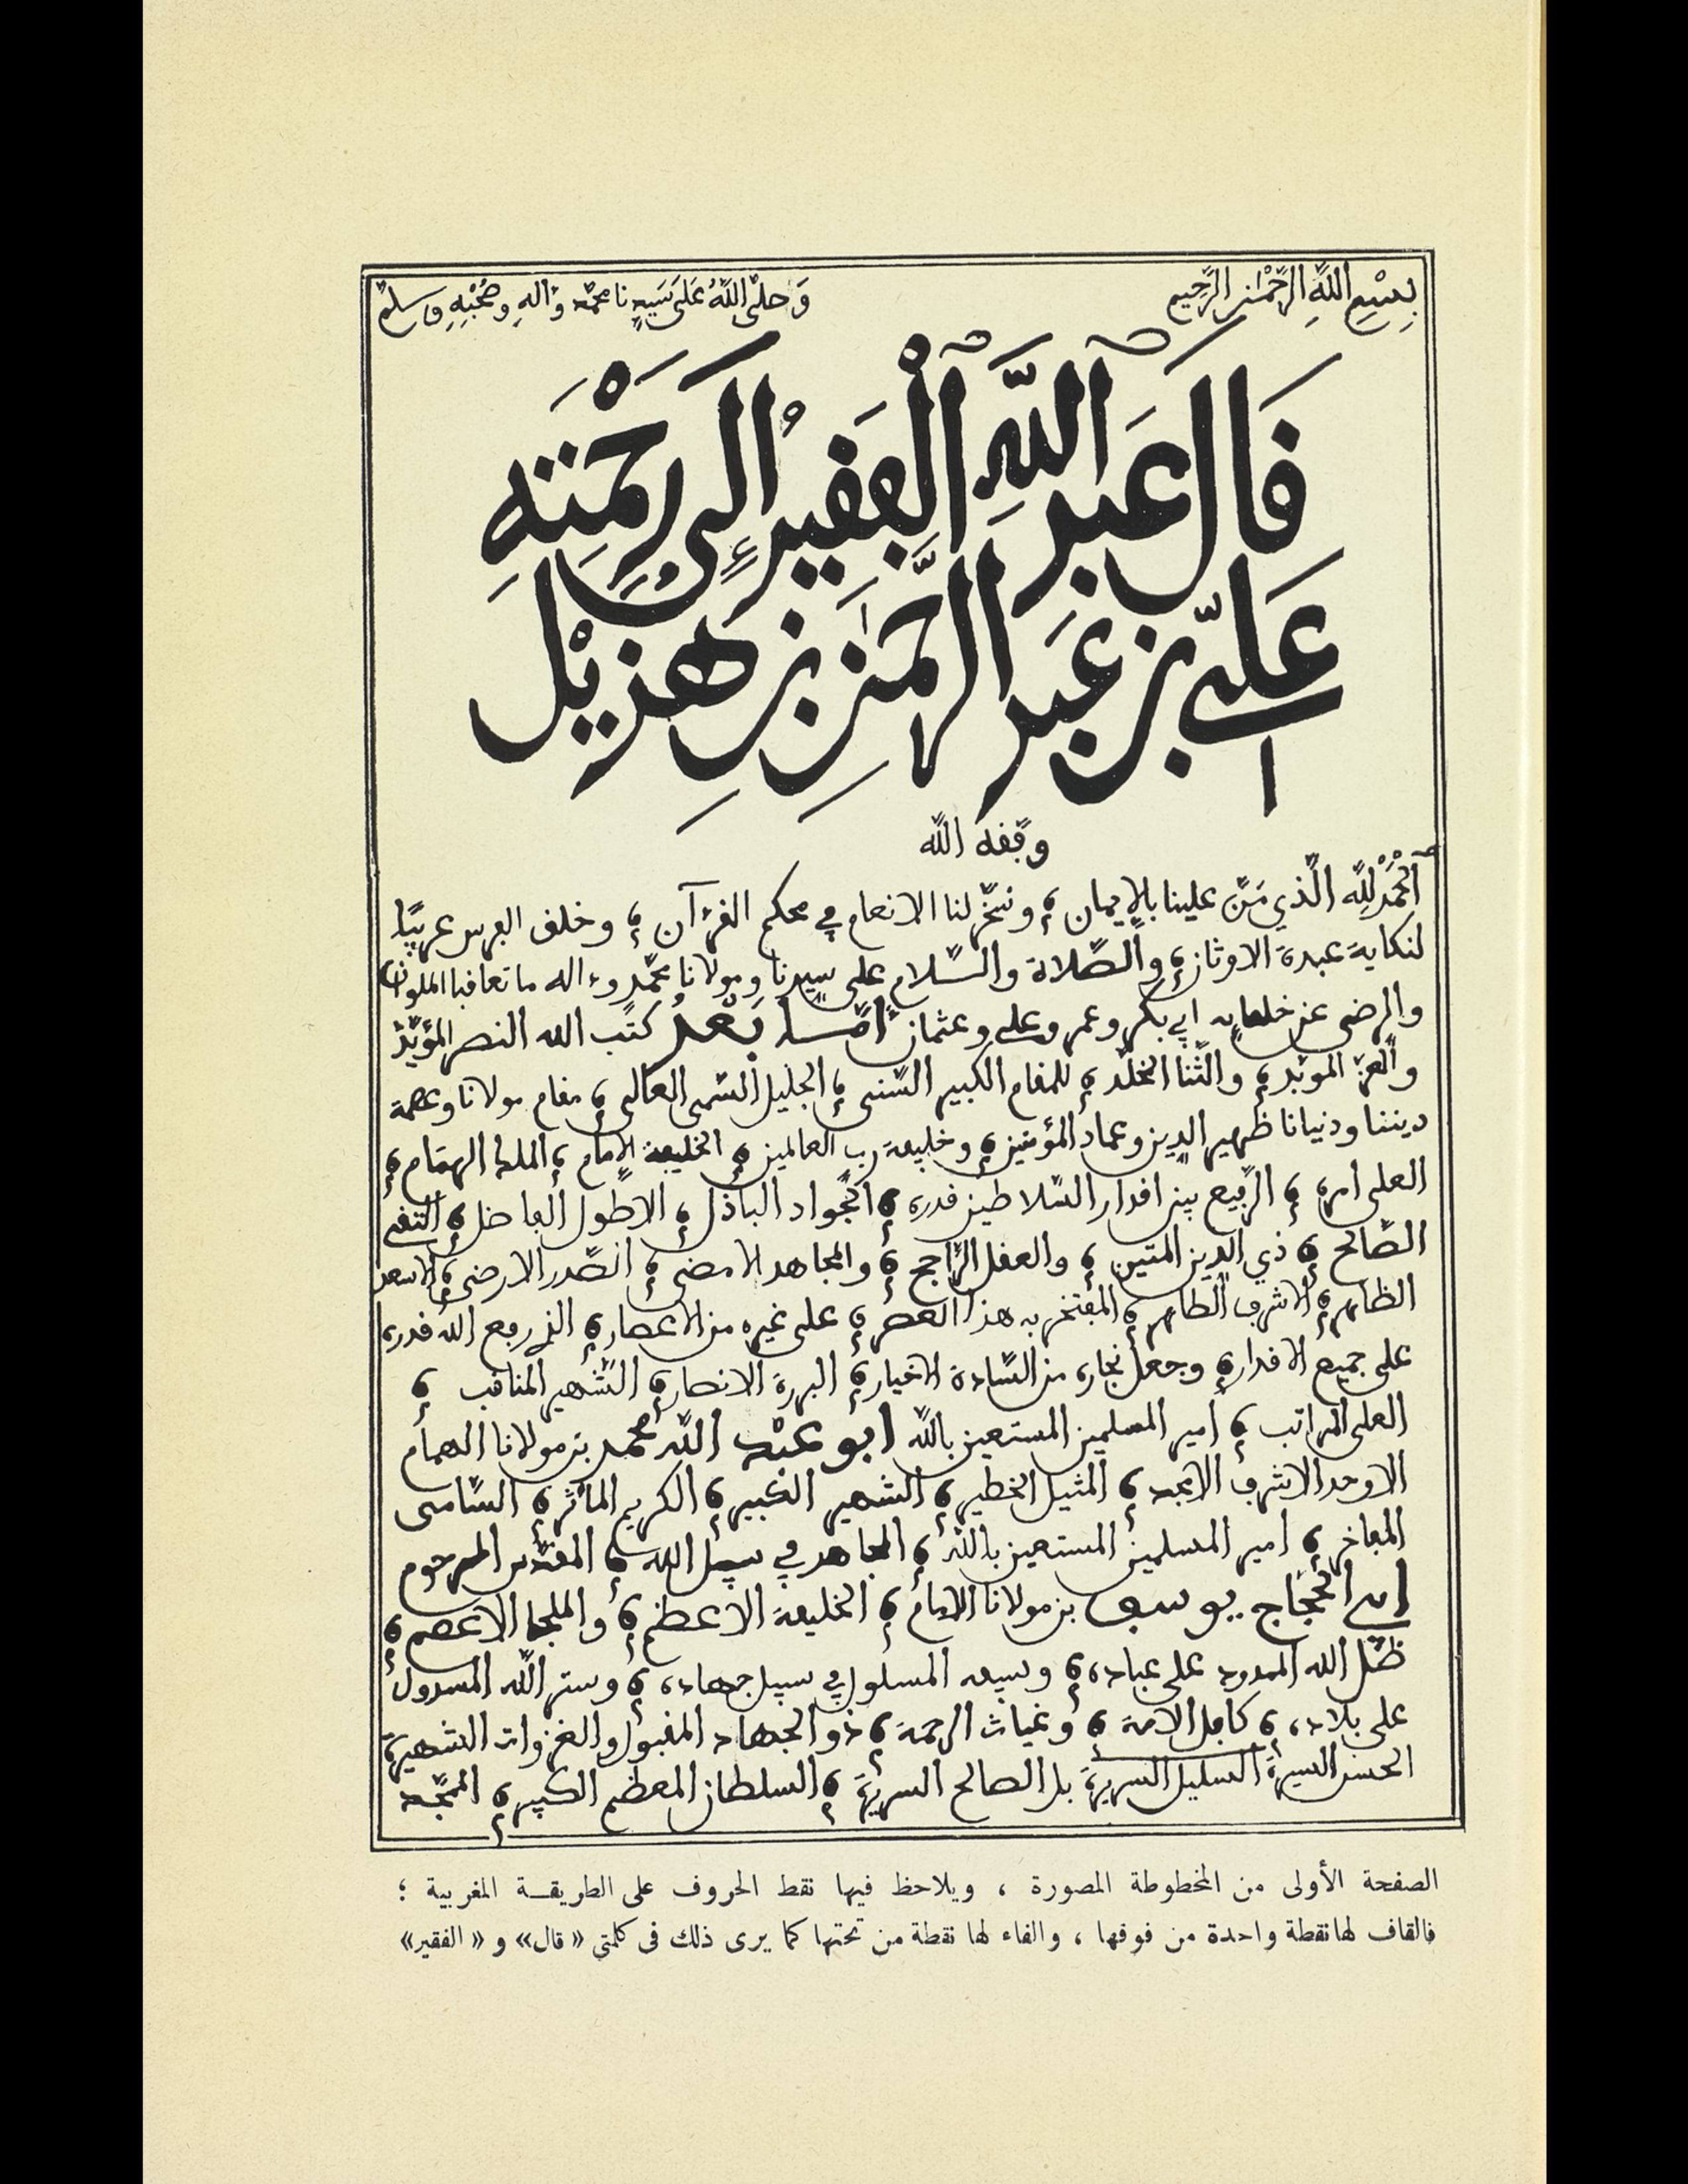 بِسْمِ اللَّهِ الرَّحْمَٰنِ الرَّحِيمِ وَصَلَّى اللَّهُ عَلَى سَيِّدِنَا محمّد وءَالِهِ وصَحْبِهِ وسلم
قَالَ عَبْدُ اللَّهِ الْفَقِيرُ إِلَى رَحْمَتِهِ
عَلِيّ بن عَبْد الرَّحْمَٰنِ بنِ هُذَيْل
وفقه الله
اَلْحَمْدُ لِلَّهِ الّذي مَنَّ علينا بالإيمان ؛ وسَخّر لنا الانعام في محكم القرءآن ؛ وخلق الفرس عربيًّا
لنكاية عبدة الاوثان ؛ والصّلاة والسّلام على سيدنا ومولانا محمّد وءاله ما تعاقبا الملوان
والرضى عن خلفايه ابي بكر وعمر وعلي وعثمان أمّا بَعْد كتب الله النصر المؤيّد
والعزّ الموبّد ؛ والثّنا المخلّد ؛ للمقام الكبير السّنى ؛ الجليل السّمى العالى ؛ مقام مولانا وعصمة
ديننا ودنيانا ظهير الدين وعماد المؤمنين ؛ وخليفة رب العالمين ؛ الخليفة الإمام ؛ الملك الهمّام ؛
العلى امره ؛ الرّفيع بين اقدار السّلاطين قدره ؛ الجّواد الباذل ؛ الاطول الفاضل ؛ التقي
الصّالح ؛ ذي الدين المتين ؛ والعقل الرّاجح ؛ والمجاهد الامضى ؛ الصّدر الارضى ؛ الاسعد
الظاهر ؛ الاشرف الطاهر ؛ المفتخر به هذا العصر ؛ على غيره من الاعصار ؛ الذي رفع الله قدره
على جميع الاقدار ؛ وجعل نجاره من السّادة الاخيار ؛ البررة الانصار ؛ الشّهير المناقب ؛
العلى المراتب ؛ أمير المسلمين المستعين بالله ابو عبْد الله محمد بن مولانا الهمام
الاوحد الاشرف الامجد ؛ المثيل الخطير ؛ الشهير الكبير ؛ الكريم المآثر ؛ السّامى
المفاخر ؛ امير المسلمين المستعين بالله ؛ المجاهد في سبيل الله ؛ المقدّس المرحوم
ابي الحجّاج يوسف بن مولانا الامام ؛ الخليفة الاعظم ؛ والملجا الاعصم ؛
ظلّ الله الممدود على عباده ؛ وسيفه المسلول في سبيل جهاده ؛ وستر الله المسدول
على بلاده ؛ كافل الامة ؛ وغياث الرحمة ؛ ذو الجهاد المقبول والغزوات الشهيرة
الحسن السيرة السليل السريرة بل الصالح السريرة ؛ السلطان المعظم الكبير ؛ الممجّد
الصفحة الأولى من المخطوطة المصورة ، ويلاحظ فيها نقط الحروف على الطريقة المغربية ؛
فالقاف لها نقطة واحدة من فوقها ، والفاء لها نقطة من تحتها كما يرى ذلك فى كلمتي « قال» و « الفقير»